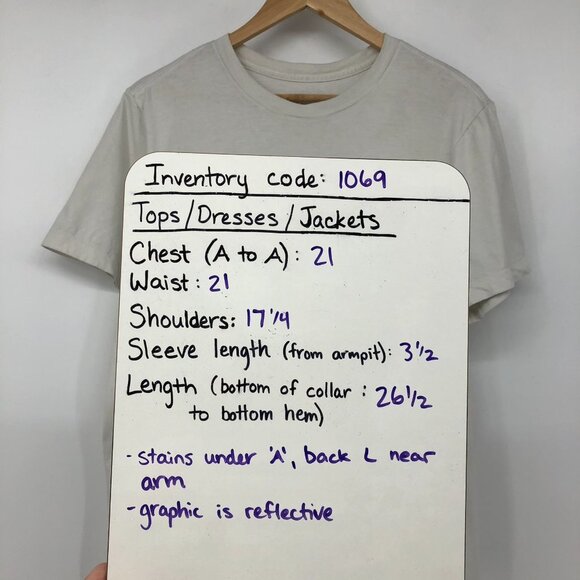 Inventory code: 1069
Tops/Dresses/Jackets
Chest (A to A): 21
Waist: 21
Shoulders: 17 1/4
Sleeve length (from armpit): 3 1/2
Length (bottom of collar : 26 1/2
to bottom hem)
- stains under 'A', back L near
arm
- graphic is reflective